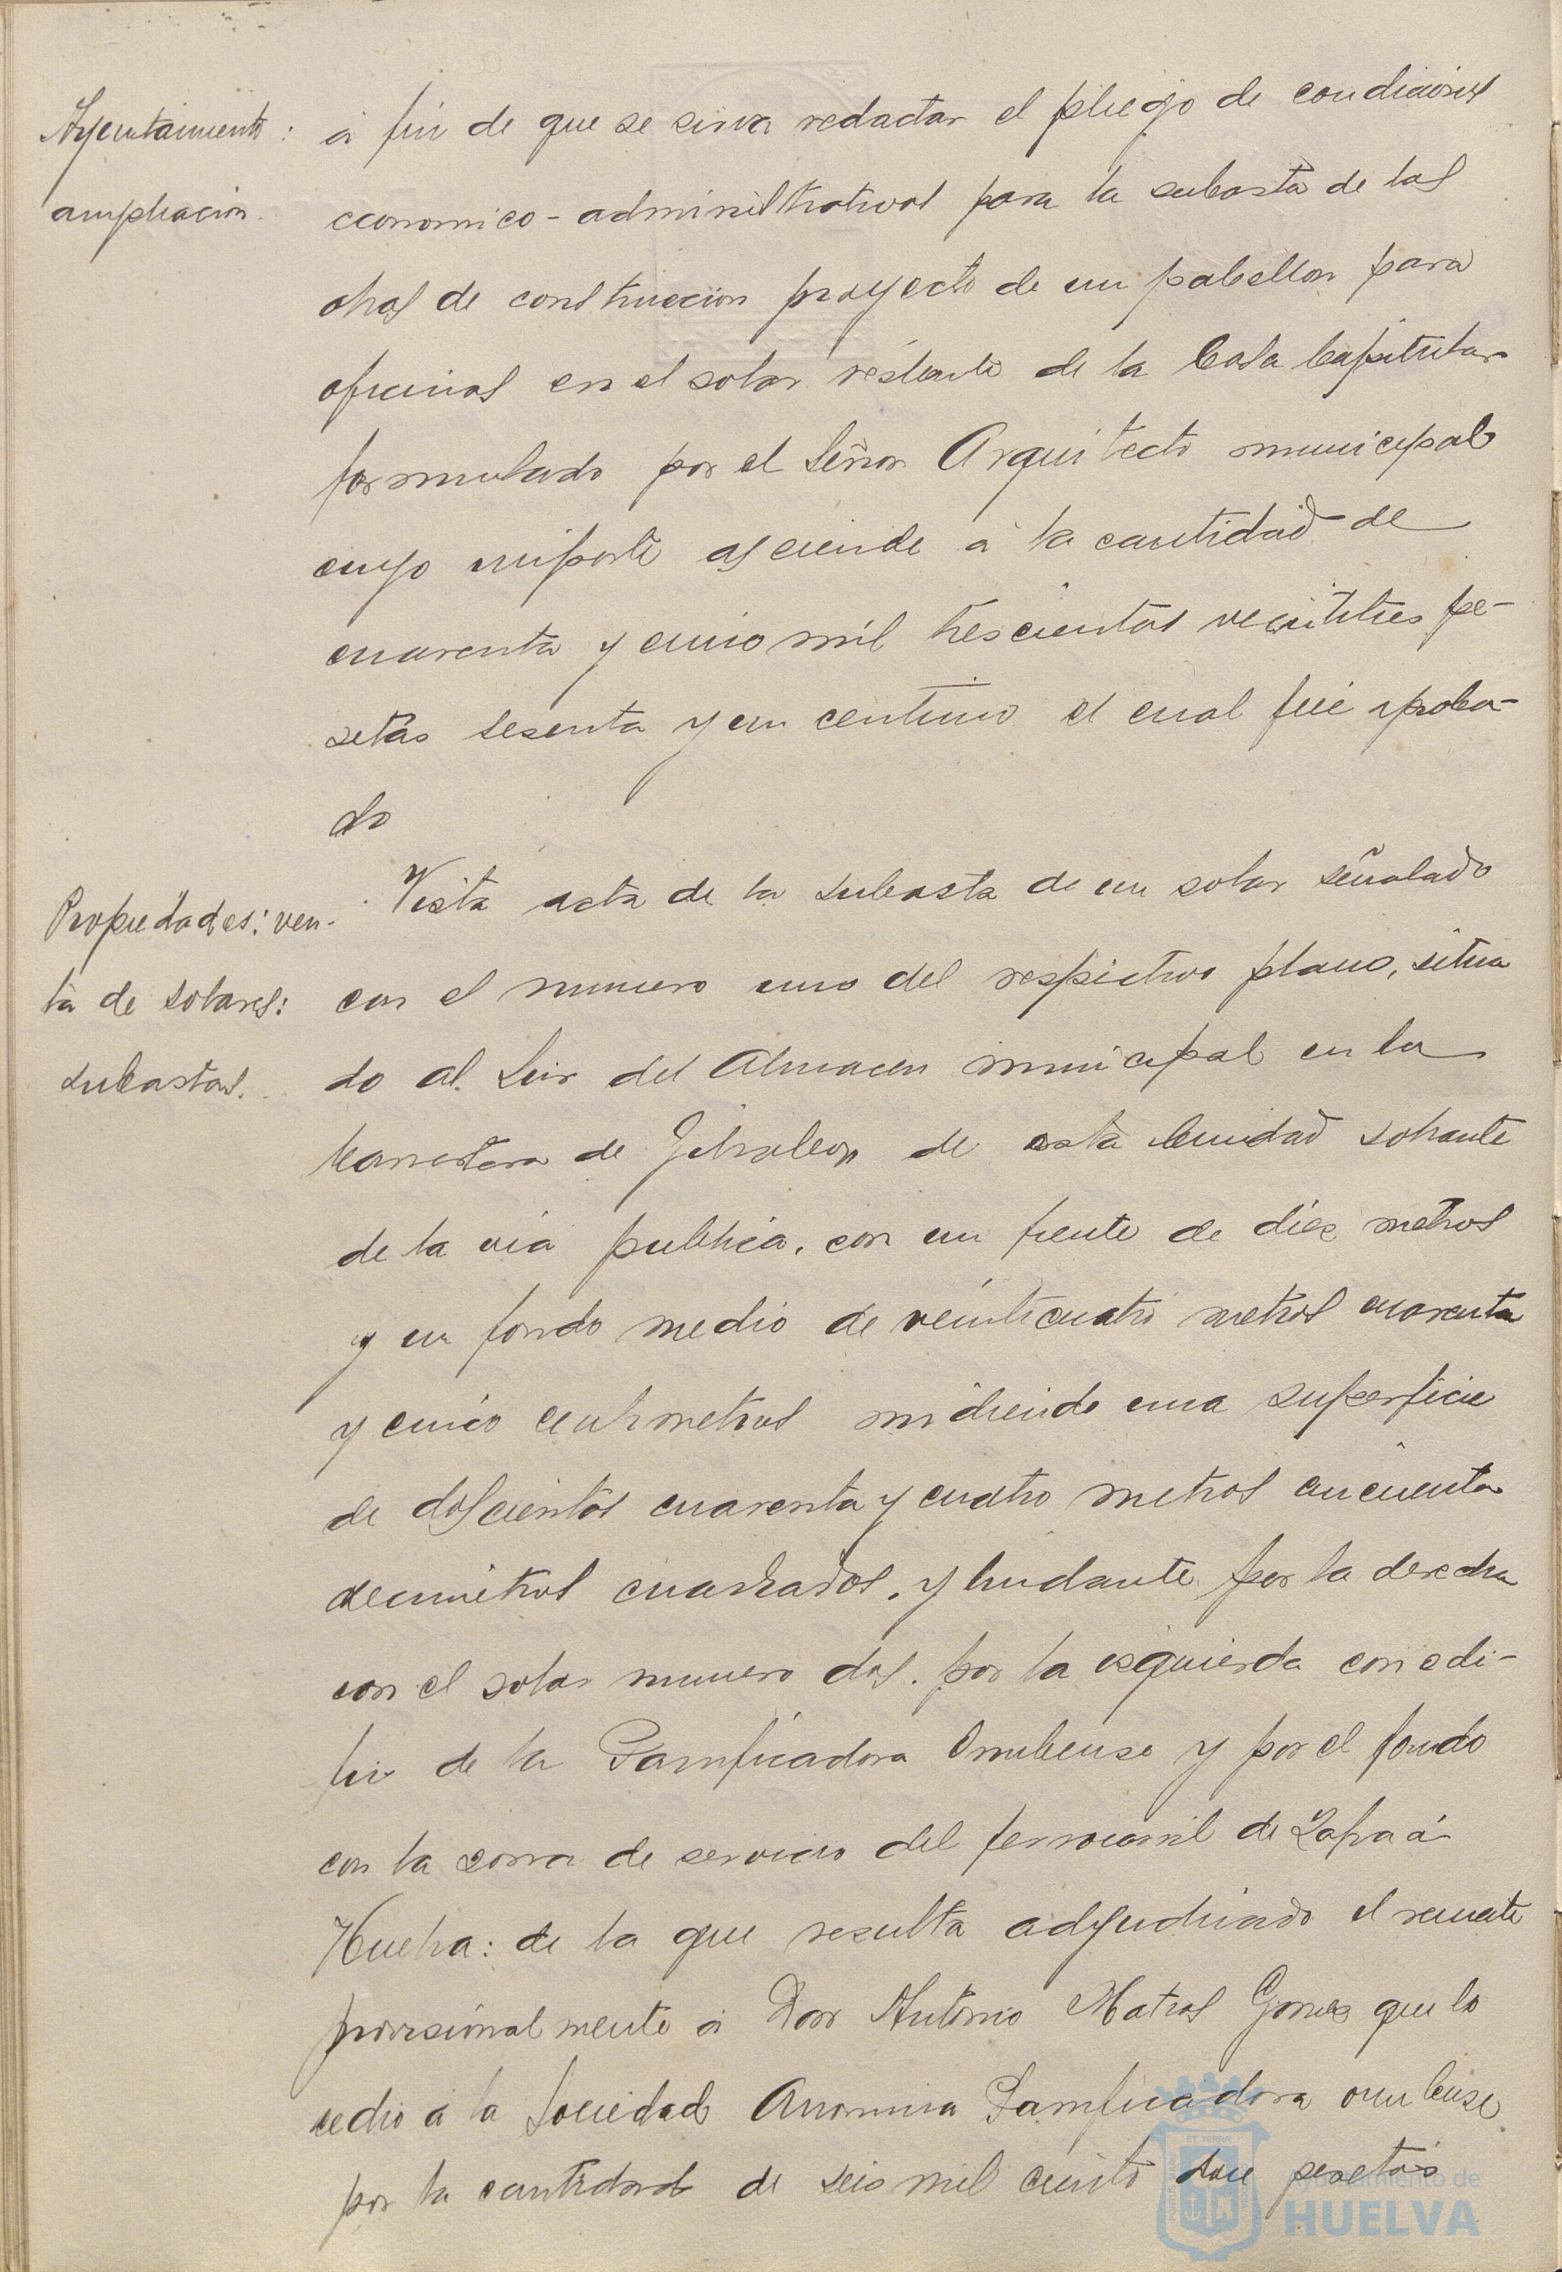 Ayuntamiento:
ampliacion.
á fin de que se sirva redactar el pliego de condiciones
economico-administrativas para la subasta de las
obras de construccion proyecto de un pabellon para
oficinas en el solar restante de la Casa Capitular
formulado por el Señor Arquitecto municipal
cuyo importe asciende á la cantidad de
cuarenta y cinco mil trescientas veintitres pe-
setas sesenta y un centimo el cual fué aproba-
do
Propiedades: ven-
ta de solares:
subastas.
Vista acta de la subasta de un solar señalado
con el numero uno del respectivo plano, situa
do al Sur del Almacen municipal en la
Carretera de Gibraleon de esta Ciudad sobrante
de la via publica, con un frente de diez metros
y un fondo medio de veinticuatro metros cuarenta
y cinco centimetros midiendo una superficie
de doscientos cuarenta y cuatro metros cincuenta
decimetros cuadrados, y lindante por la derecha
con el solar numero dos, por la izquierda con edi-
fio de la Panificadora Onubense y por el fondo
con la zona de servicio del ferrocarril de Zafra á
Huelva: de la que resulta adjudicado el remate
provisionalmente á Don Antonio Matos Gomez que lo
cedio á la Sociedad Anonima Panificadora onubense
por la cantidad de seis mil ciento doce pesetas
Ayuntamiento de
HUELVA